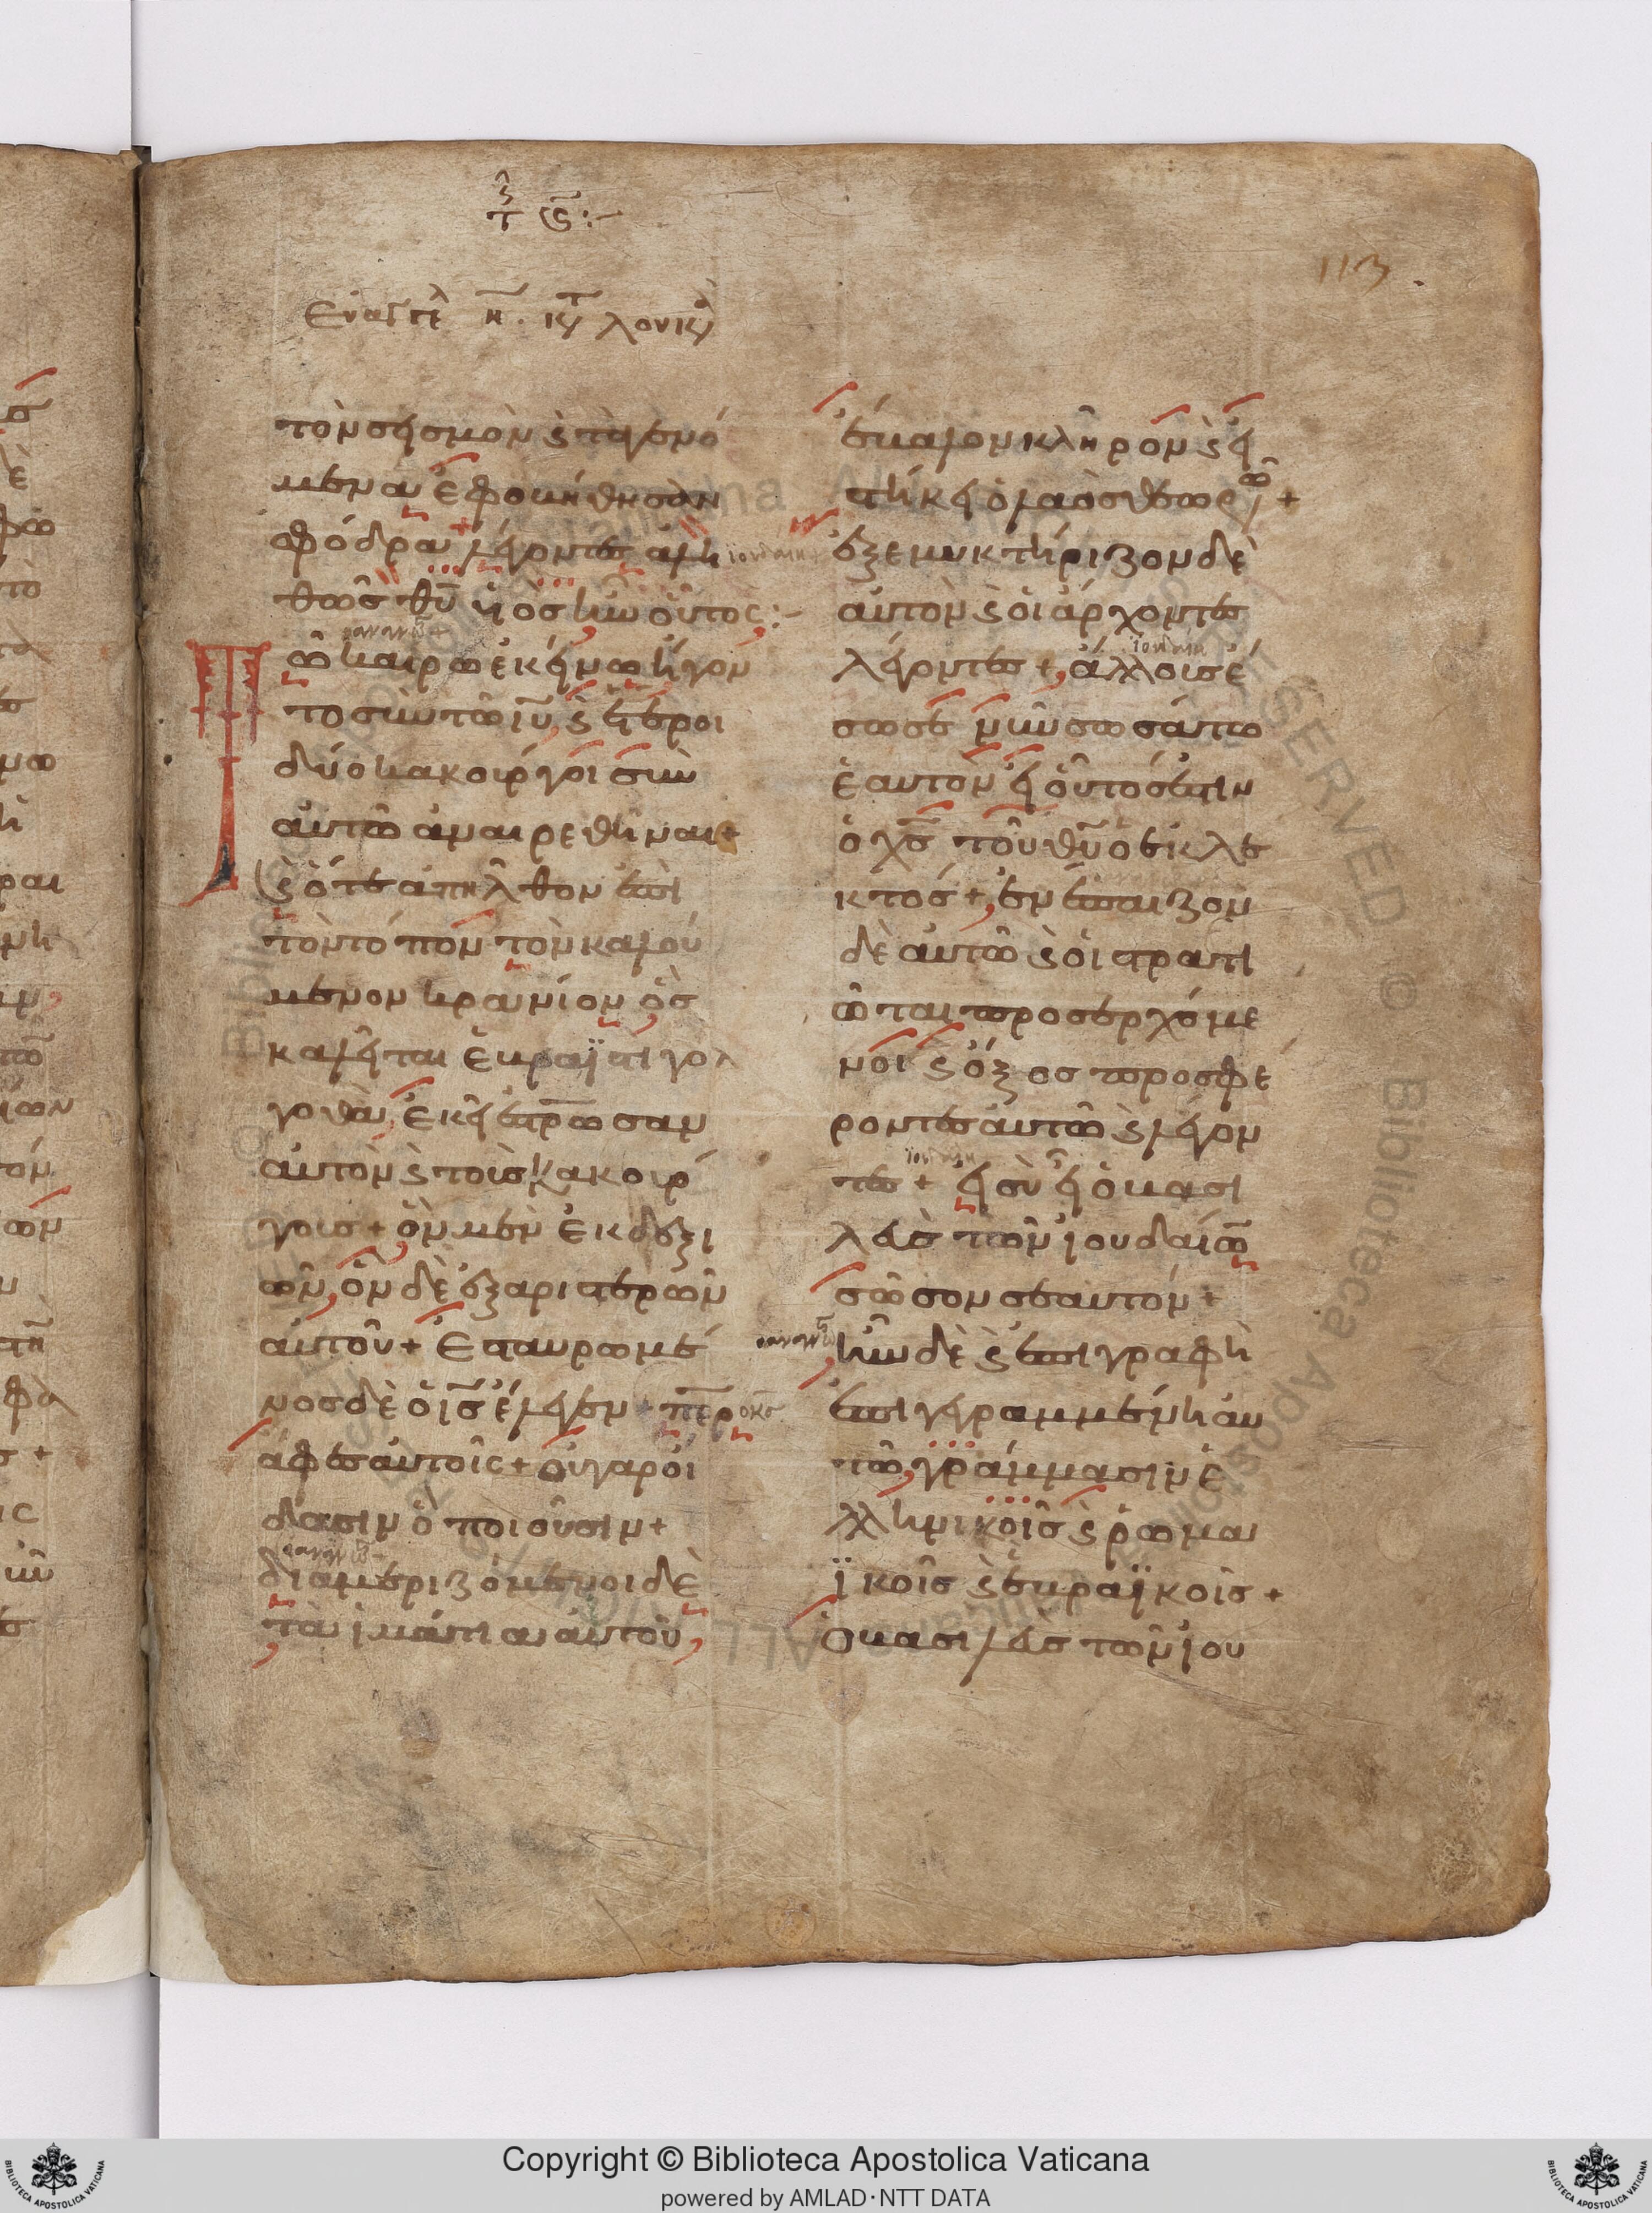 113
Εὐαγγε η. κτ λουκ
τὸν σεισμὸν ϗ τὰ γενό
μενα ἐφοβήθησαν
σφόδρα λέγοντες ἀλη
θῶς θῡ ὑιὸς ἦν οὗτος:-
Τῶ καιρῶ ἐκείνω ἤγον
το σὺν τῶ ιῡ, ϗ ἕτεροι
δύο κακοῦργοι σὺν
αὐτῶ ἀναιρεθῆναι+
ϗ ὅτε ἀπῆλθον ἐπὶ
τὸν τόπον τὸν καλού
μενον κρανίον ὃς
καλεῖται ἑβραϊστὶ γολ
γοθὰ, ἐκεῖ ἐστρωσαν
αὐτὸν ϗ τοὺς κακούρ
γοις+ ὃν μὲν ἐκ δεξι
ῶν, ὃν δὲ ἐξ ἀριστερῶν
αὐτοῦ+ Ἐσταυρωμέ
νος δὲ ὁ ις̄ ἔλεγεν+ περ
ἄφες αὐτοῖς+ οὐ γὰρ οἴ
δασιν ὃ ποιοῦσιν+
διαμεριζόμενοι δὲ
τὰ ἱμάτια αὐτοῦ,
ἔβαλον κλῆρον ϗ εἱ
στήκει ὁ λαὸς θεωρῶ+
ἐξεμυκτήριζον δὲ
αὐτὸν ϗ οἱ ἄρχοντες
λέγοντες+ ἄλλους ἔ
σωσε νῦν σωσάτω
ἑαυτὸν εἰ οὗτός ἐστιν
ὁ χς̄ τοῦ θῡ ὁ ἐκλε
κτός+ ἐνέπαιζον
δὲ αὐτῶ ϗ οἱ στρατι
ῶται προσερχόμε
νοι ϗ ὄξος προσφέ
ροντες αὐτῶ ϗ λέγον
τες+ εἰ σὺ εἶ ὁ βασι
λεὺς τῶν ἰουδαίω
σῶσον σεαυτόν+
ἦν δὲ ϗ ἐπιγραφὴ
ἐπιγεγραμμένη ἀυ
τῶ, γράμμασιν ἑ
λληνικοῖς ϗ ῥωμα
ϊκοῖς ϗ ἑβραϊκοῖς+
Ὁ βασιλεὺς τῶν ἰου
Copyright © Biblioteca Apostolica Vaticana
powered by AMLAD·NTT DATA